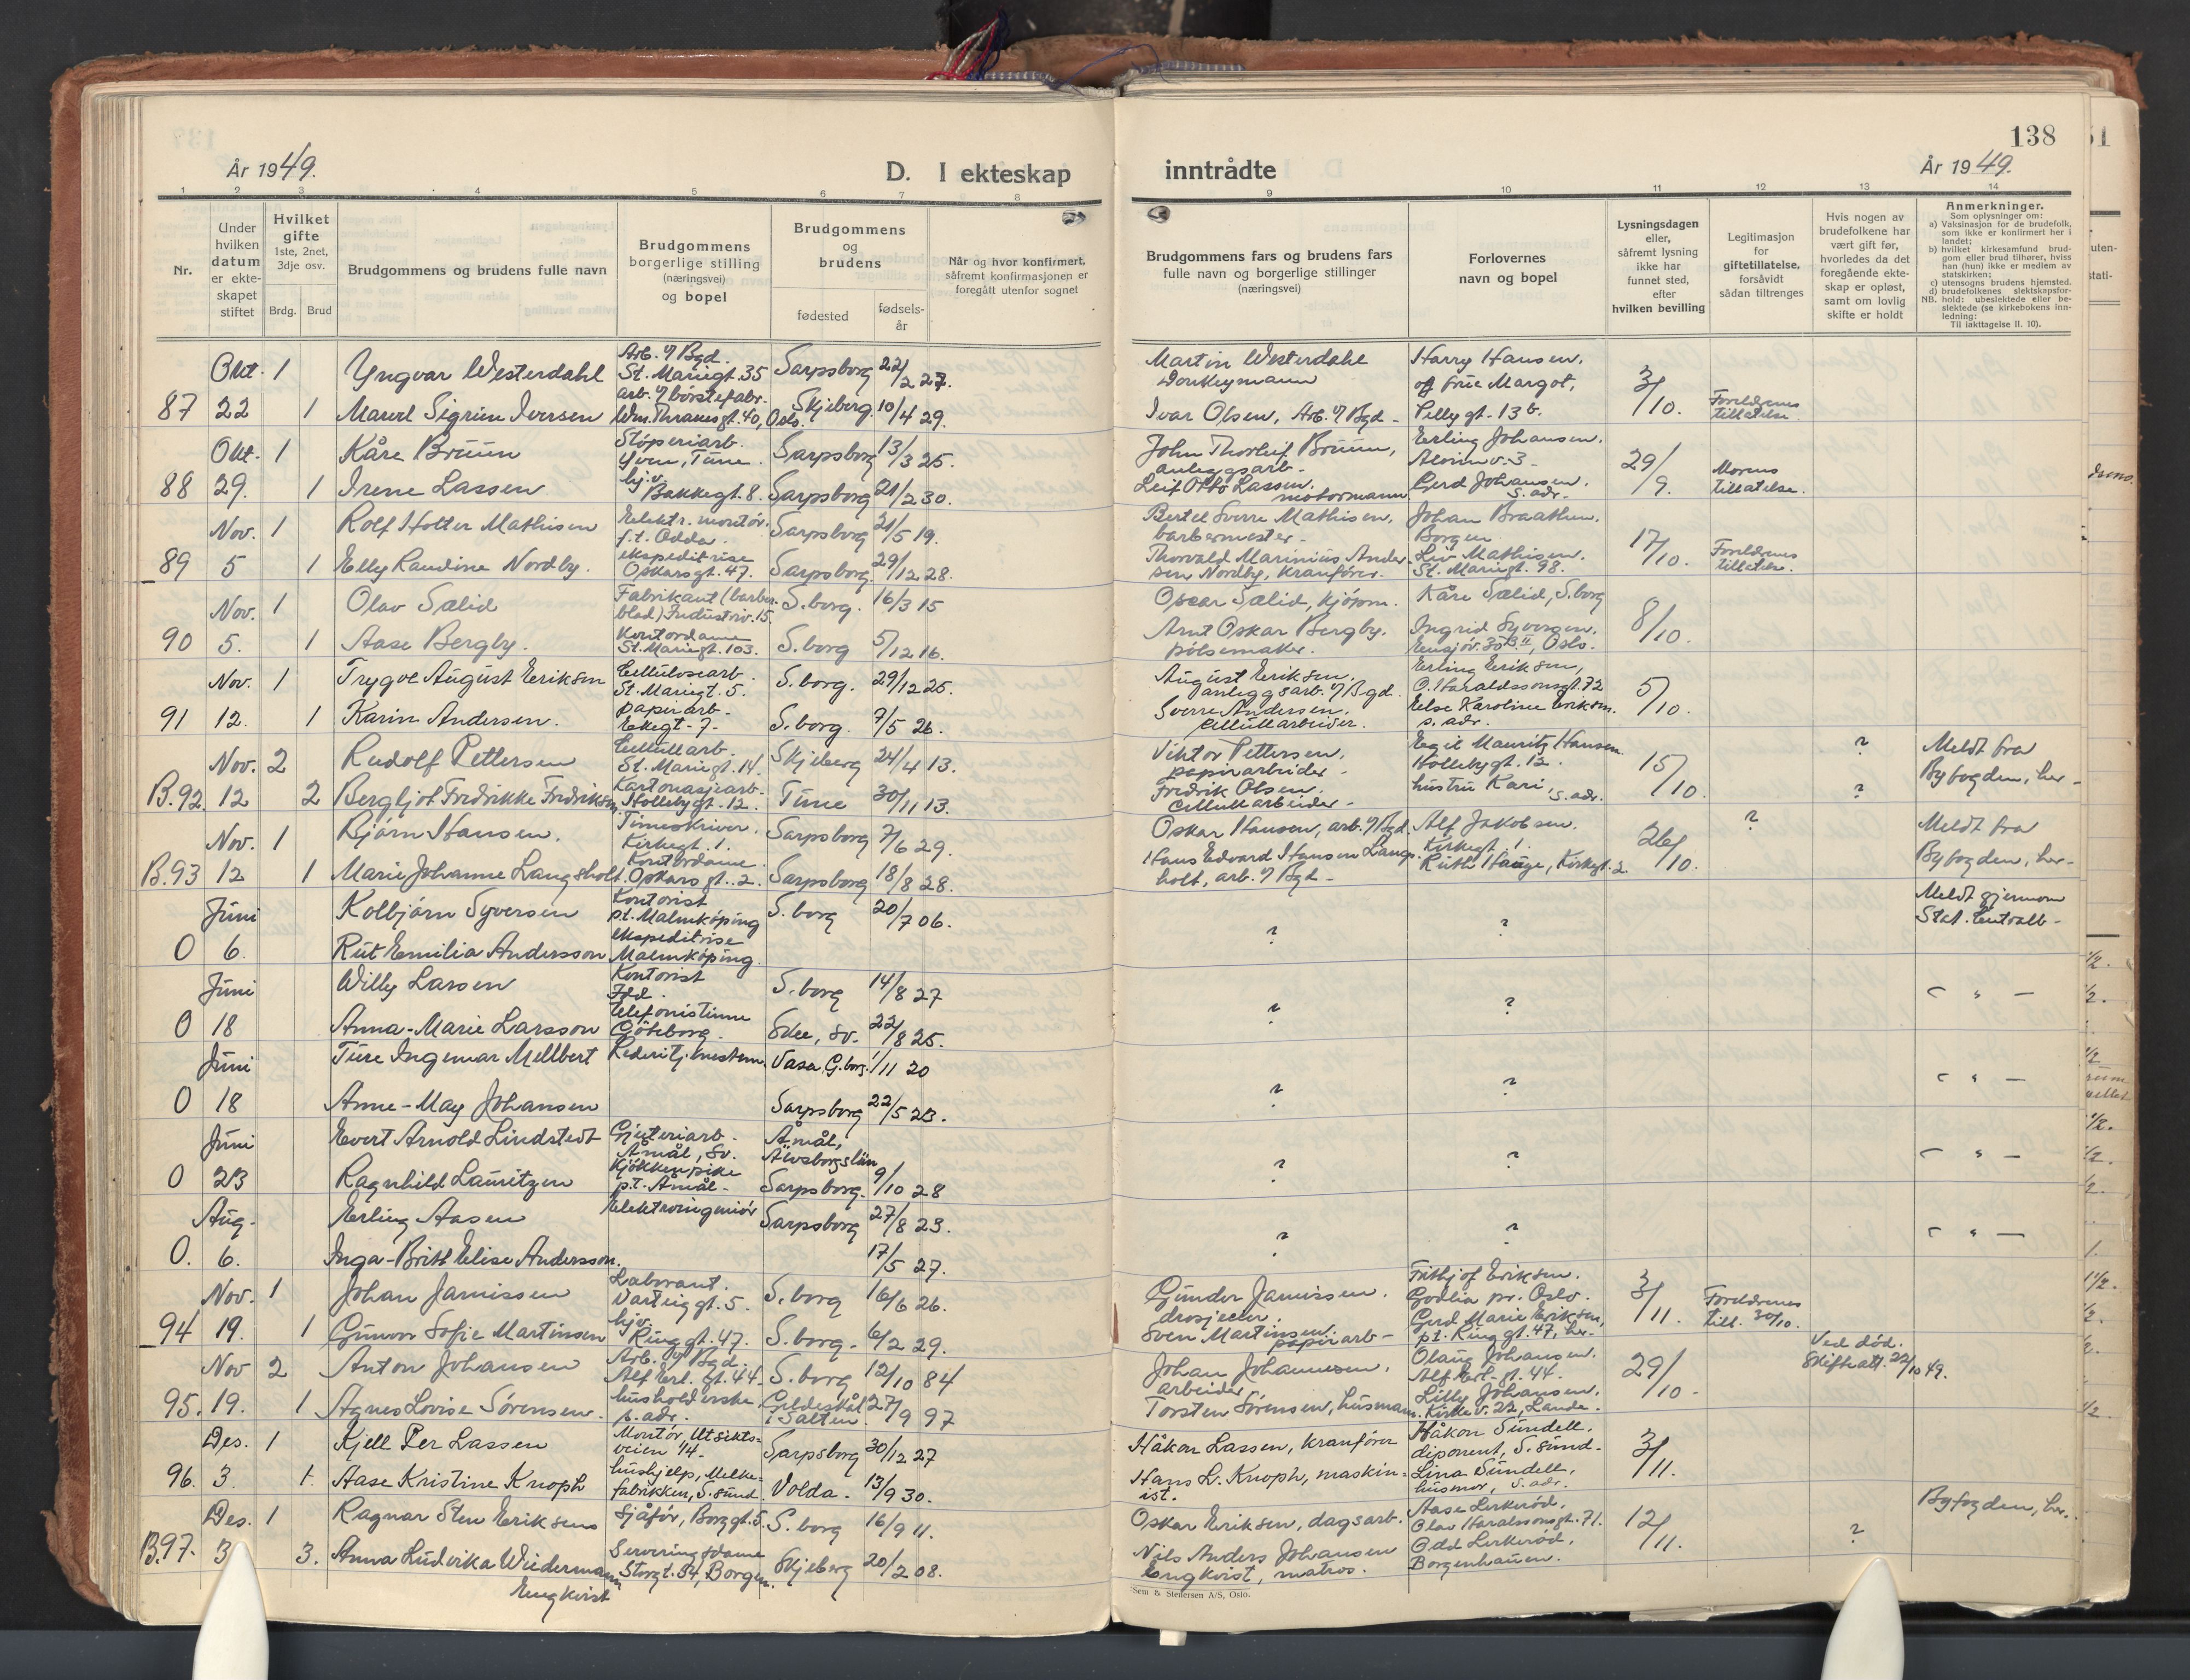 År 1949.
D. I ekteskap
1 2 3 4 5 6 7 8
Nr.
Under hvilken datum er ekteskapet stiftet
Hvilket gifte
1ste, 2net, 3dje osv.
Brdg. Brud
Brudgommens og brudens fulle navn
Brudgommens borgerlige stilling (næringsvei) og bopel
Brudgommens og brudens
fødested
fødsels-år
Når og hvor konfirmert, såfremt konfirmasjonen er foregått utenfor sognet
Okt. 1 Yngvar Westerdahl Arb. v/ Bgd. St. Mariegt. 35 Sarpsborg 22/2 27.
87 22 1 Sigrun Iversen arb. v/ børstefabr. Wm. Thranesgt. 40, Oslo. Skjeberg 10/4 29.
Okt. 1 Kåre Bruun Støperiarb. Yven, Tune. Sarpsborg 13/3 25.
88 29. 1 Irene Lassen hj.v. Bakkegt. 8. Sarpsborg 21/2 30.
Nov. 1 Rolf Holter Mathisen Elektr. montør. f.t. Odda. Sarpsborg 21/5 19.
89 5 1 Elly Randine Nordby. ekspeditrise Oskarsgt. 47. Sarpsborg 29/12 28.
Nov. 1 Olav Sælid Fabrikant (barber-blad) Industriv. 15. S.borg. 16/3 15
90 5. 1 Aase Bergby. Kontordame St. Mariegt. 103. S.borg 5/12 16.
Nov. 1 Trygve August Eriksen Cellulosearb. St. Mariegt. 5. S.borg. 29/12 25.
91 12. 1 Karin Andersen. papirarb. Ekegt. 7. S.borg. 7/5 26.
Nov. 2 Rudolf Pettersen Cellullarb. St. Mariegt. 14. Skjeberg 24/4 13.
B.92. 12 2 Bergljot Fredrikke Fredriksen, Kartonasjearb. Hollebygt. 12. Tune 30/11 13.
Nov. 1 Bjørn Hansen. Timeskriver. Kirkegt. 1. Sarpsborg 7/6 29.
B.93 12 1 Marie Johanne Langsholt. Kontordame. Oskarsgt. 2. Sarpsborg 18/8 28.
Juni Kolbjørn Syversen Kontorist p.t. Malmköping S.borg 20/7 06.
0 6. Rut Emilia Andersson ekspeditrise Malmköping.
Juni Willy Larsen Kontorist S.borg 14/8 27
0 18 Anna-Marie Larsson telefonistinne Göteborg. 22/8 25.
Juni Ture Ingemar Mellbert Vasa, G.borg. 1/11 20
0 18 Anne-May Johansen Sarpsborg 22/5 23.
Juni Evert Arnold Lindstedt Gjuteriarb. Åmål, Sv. Åmål, Älvsborgslän
0 23 Ragnhild Lauritzen Kjøkkenpike p.t. Åmål. Sarpsborg. 9/10 28
Aug. Erling Aasen Elektroingeniør Sarpsborg 27/8 23.
0. 6. Inga-Britt Elise Andersson. 17/5 27.
Nov. 1 Johan Jamissen Laborant. Varteiggt. 5. S.borg 16/6 26.
94 19. 1 Gunvor Sofie Martinsen hj.v. Ringgt. 47. S.borg. 6/2 29.
Nov 2 Anton Johansen Arb. v/ Bgd. Alf Erl. gt. 44. S.borg 12/10 84
95. 19. 1 Agnes Lovise Sørensen. husholderske s.adr. Gildeskål i Salten. 27/9 97
Des. 1 Kjell Per Lassen Montør, Utsikts-veien 14. Sarpsborg 30/12 27
96. 3. 1. Aase Kristine Knoph hushjelp, Melke-fabrikken, S.sund. Volda. 13/9 30.
Des. 1 Ragnar Sten Eriksens Sjåfør, Borggt. 5. S.borg 16/9 11.
B.97. 3 3. Anna Ludvika Wiedermann Engkvist Serveringsdame Storgt. 34, Borgen. Skjeberg 20/2 08.
inntrådte
138
År 1949.
9 10 11 12 13 14
Brudgommens fars og brudens fars fulle navn og borgerlige stillinger (næringsvei)
Forlovernes navn og bopel
Lysningsdagen eller, såfremt lysning ikke har funnet sted, efter hvilken bevilling
Legitimasjon for giftetillatelse, forsåvidt sådan tiltrenges
Hvis nogen av brudefolkene har vært gift før, hvorledes da det foregående ekteskap er opløst, samt om lovlig skifte er holdt
Anmerkninger.
Som oplysninger om:
a) Vaksinasjon for de brudefolk, som ikke er konfirmert her i landet;
b) hvilket kirkesamfund brudgom eller brud tilhører, hviss han (hun) ikke er medlem av statskirken;
c) utensogns brudens hjemsted.
d) brudefolkenes slektskapsforhold: ubeslektede eller beslektede (se kirkebokens innledning:
NB.
Til iakttagelse II. 10).
Martin Westerdahl Donkeymann Harry Hansen. og frue Margot, 3/10.
Ivar Olsen, Arb. v/ Bgd. Pellygt. 13 b. Foreldrenes tillatelse
John Thorleif Bruun, anleggsarb. Erling Johansen. Alvimv. 3. 29/9.
Leif Otto Lassen. motormann Gerd Johansen. s. adr. Morens tillatelse.
Bertel Sverre Mathisen, barbermester. Johan Braathen. Borgen 17/10.
Thorvald Marinius Andersen Nordby, kranfører. Liv Mathisen. St. Mariegt. 98. Foreldrenes tillatelse.
Oscar Sælid, kjøpm. Kåre Sælid, S.borg 8/10.
Arnt Oskar Bergby. pølsemaker. Ingrid Syversen. Ensjøv. 30 B II, Oslo.
August Eriksen. anleggsarb. v/ Bgd. Erling Eriksen, O. Haraldssonsgt. 72 5/10.
Sverre Andersen. Cellullarbeider. Else Karoline Eriksen. s. adr.
Viktor Pettersen, papirarbeider. Egil Mauritz Hansen. Hollebygt. 12. 15/10 ? Meldt fra
Fredrik Olsen. Cellullarbeider. hustru Kari, s. adr. ? Byfogden, her.
Oskar Hansen, arb. v/ Bgd. Alf Jakobsen. Kirkegt. 1. 26/10. ? Meldt fra
Hans Edvard Hansen Langsholt, arb. v/ Bgd. Ruth Hauge, Kirkegt. 2. Byfogden, her.
? ? Meldt gjennom Stat. Centralb.
? ? – " –
? ? – " –
? ? – " –
? ? – " –
Gunder Jamissen. drosjeeier. Frithjof Eriksen. Godlia pr. Oslo. 3/11. Foreldrenes till. 30/10.
Sven Martinsen. papirarb. Gerd Marie Eriksen, p.t. Ringgt. 47, her.
Johan Johannesen. arbeider Olaug Johansen. Alf Erl. gt. 44. 29/10. Ved død. Skifteatt. 22/10 49.
Torsten Sørensen, husmann. Lilly Johansen. Kirkev. 22, Lande.
Håkon Lassen, kranfører Håkon Sundell. disponent, S.sund. 3/11.
Hans L. Knoph, maskinist. Lina Sundell, husmor, s. adr.
Oskar Eriksen, dagsarb. Aase Lerkerød. Olav Haraldssonsgt. 71. 12/11. Byfogden, her.
Nils Anders Johansen Engkvist, matros. Odd Lerkerød, Borgenhauen. ?
Sem & Stenersen A/S, Oslo.